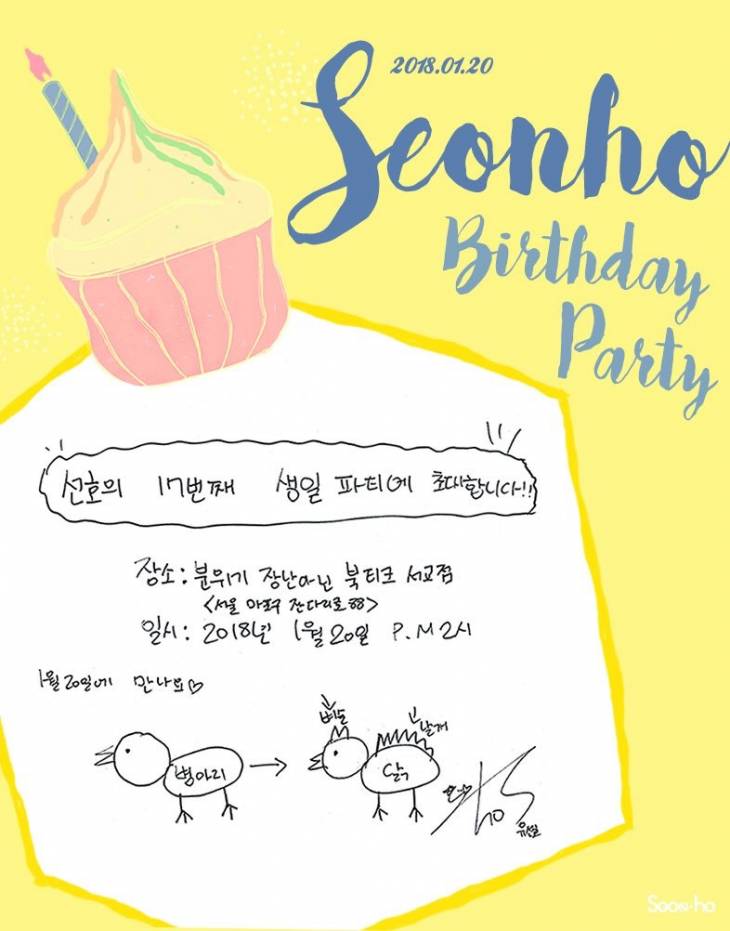 2018.01.20
Seonho
Birthday
Party
선호의 17번째 생일 파티에 초대합니다!!
장소: 분위기 장난아닌 북티크 서교점
<서울 마포구 잔다리로 88>
일시: 2018년 1월 20일 P.M 2시
1월 20일에 만나요♡
벼슬 날개
병아리 → 닭
유선호
Soon-ho